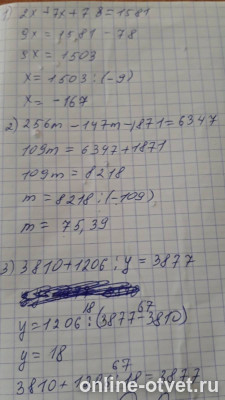 1) 2x+7x+78=1581
9x=1581-78
9x=1503
x=1503:(-9)
x=-167
2) 256m-147m-1871=6347
109m=6347+1871
109m=8218
m=8218:(-109)
m=75,39
3) 3810+1206:y=3877
18 67
y=1206:(3877-3810)
y=18
67
3810+1206:18=3877
online-otvet.ru